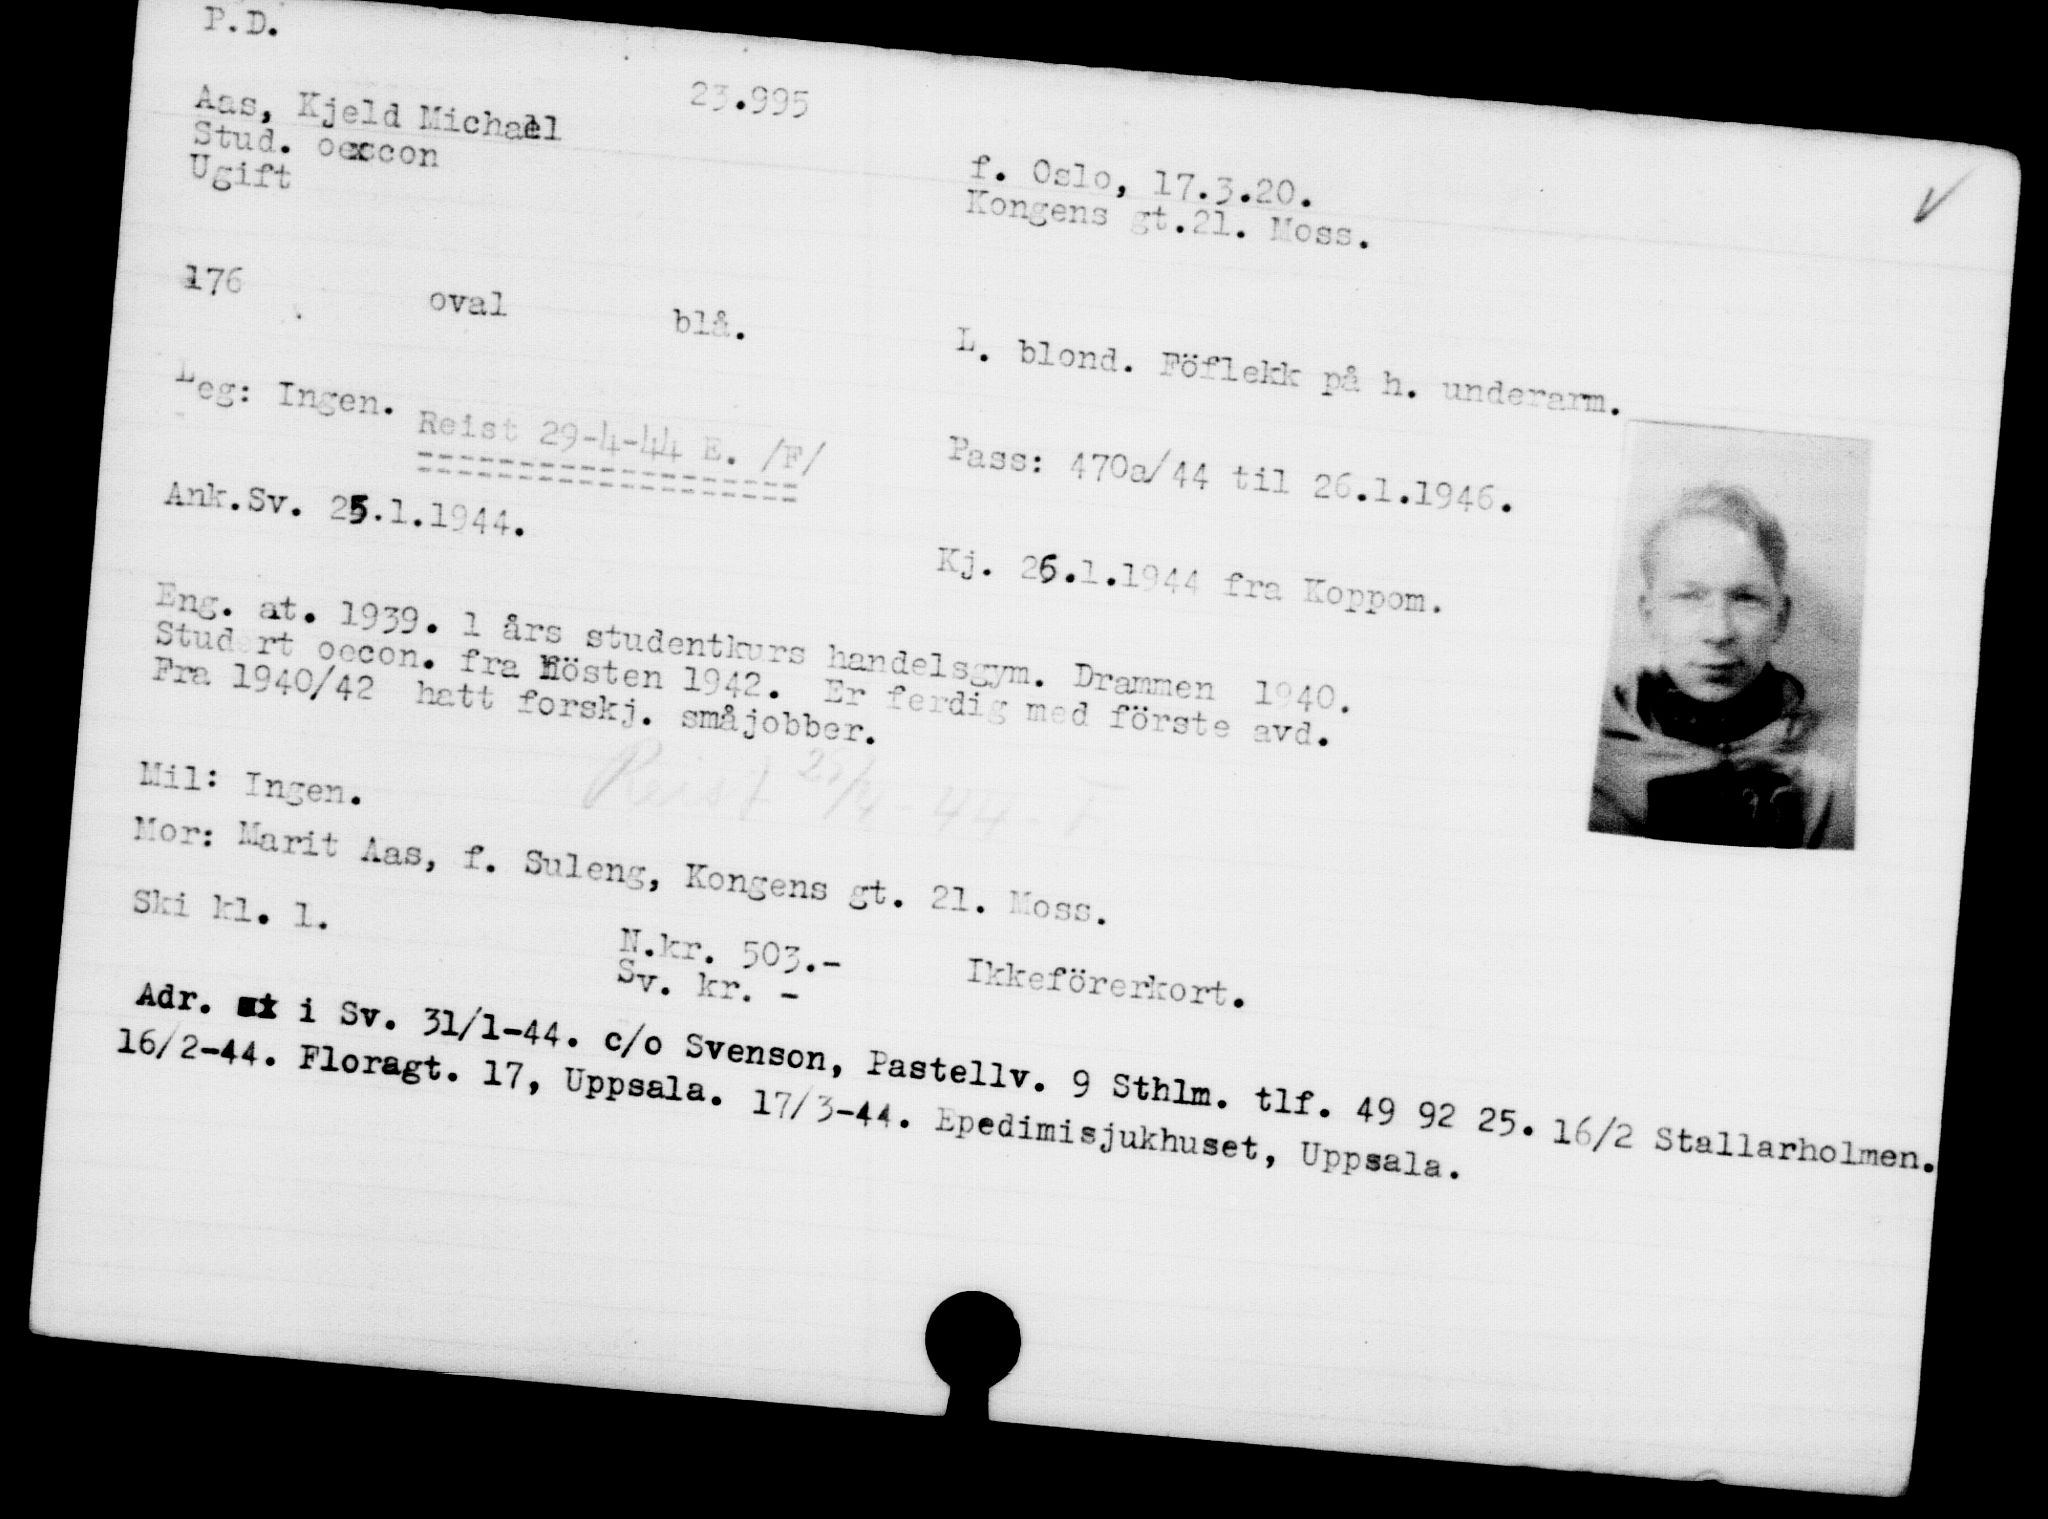 P.D.
23.995
Aas, Kjeld Michael
Stud. oecon
Ugift
f. Oslo, 17.3.20.
Kongens gt.21. Moss.
176 oval blå.
L. blond. Föflekk på h. underarm.
Leg: Ingen.
Reist 29-4-44 E. /F/
Pass: 470a/44 til 26.1.1946.
Ank.Sv. 25.1.1944.
Kj. 26.1.1944 fra Koppom.
Eng. at. 1939. 1 års studentkurs handelsgym. Drammen 1940.
Studert oecon. fra hösten 1942. Er ferdig med förste avd.
Fra 1940/42 hatt forskj. småjobber.
Reist /4 44 - F
Mil: Ingen.
Mor: Marit Aas, f. Suleng, Kongens gt. 21. Moss.
Ski kl. 1.
N.kr. 503.-
Sv. kr. -
Ikkeförerkort.
Adr. i Sv. 31/1-44. c/o Svenson, Pastellv. 9 Sthlm. tlf. 49 92 25. 16/2 Stallarholmen.
16/2-44. Floragt. 17, Uppsala. 17/3-44. Epedimisjukhuset, Uppsala.